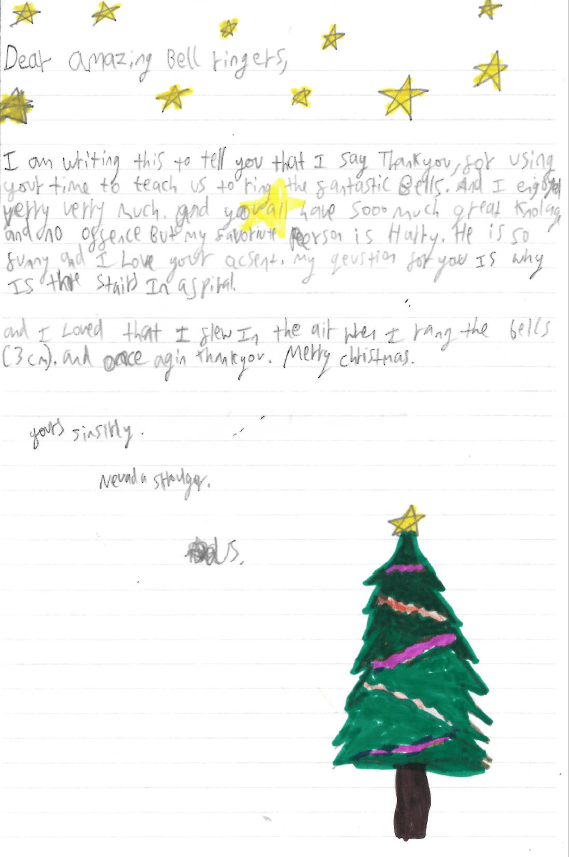 Dear amazing Bell ringers,
I am writing this to tell you that I say Thankyou, for using
your time to teach us to ring the fantastic Bells. And I enjoyed
verry verry much. and you all have sooo much great Knolag
and no offence But my favoriute Person is Harry. He is so
funny and I Love your acsent. My qeustion for you Is why
Is the stairs In aspiral.
and I Loved that I flew In the air when I rang the bells
(3cm). and once agin thankyou. Merry christmas.
yours sinsirly.
Nevada